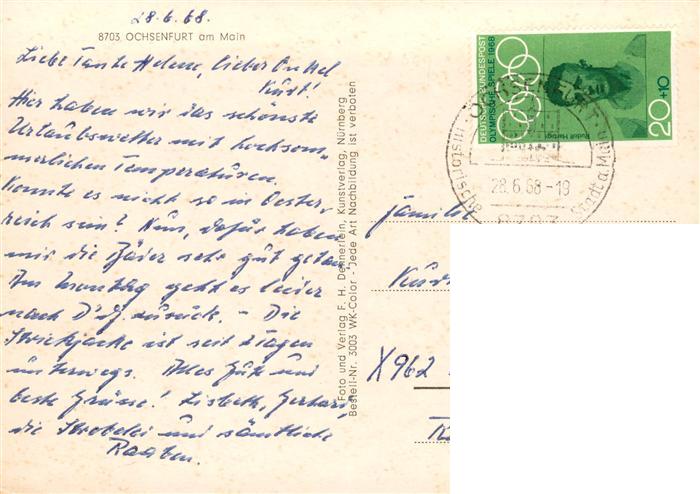 28.6.68.
8703 OCHSENFURT am Main
Liebe Tante Helene, lieber Onkel
Kurt!
Hier haben wir das schönste
Urlaubswetter mit hochsom-
merlichen Temperaturen.
Konnte es nicht so in Oester-
reich sein? Nun, dafür haben
mir die Bäder sehr gut getan.
Am Montag geht es leider
nach zurück. - Die
Strickjacke ist seit 2 Tagen
unterwegs. Alles Gute und
beste Grüsse! Lisbeth, Gerhard,
die und sämtliche
Raaben.
Foto und Verlag F. H. Dennerlein, Kunstverlag, Nürnberg
Bestell-Nr. 3003 WK-Color - Jede Art Nachbildung ist verboten
DEUTSCHE BUNDESPOST
OLYMPISCHE SPIELE 1968
Rudolf Harbig
20+10
OCHSENFURT
historische Stadt a. Main
28.6.68-19
8703
Familie
Kur
X962